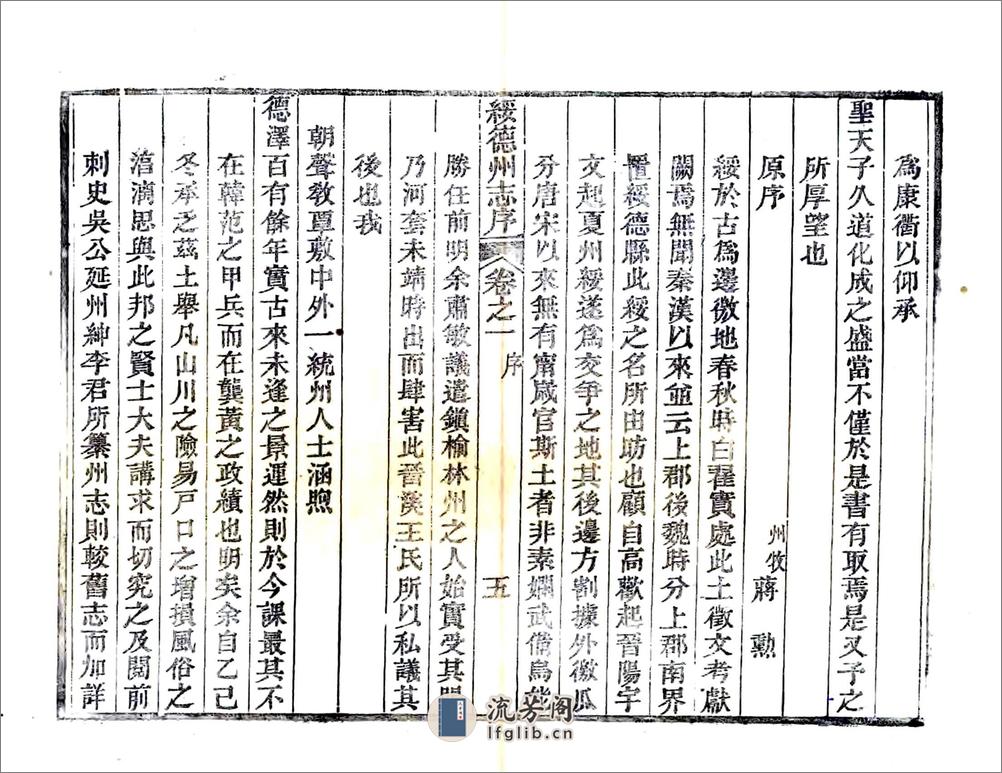 爲康衢以仰承
聖天子久道化成之盛當不僅於是書有取焉是又予之
所厚望也
原序 州牧 蔣勲
綏於古爲邊徼地春秋時白翟實處此土徵文考獻
闕焉無聞秦漢以來並云上郡後魏時分上郡南界
置綏德縣此綏之名所由昉也顧自高歡起晉陽宇
文起夏州綏遂爲交爭之地其後邊方割據外徼瓜
分唐宋以來無有甯歲官斯土者非素嫻武備烏能
綏德州志序 卷之一 序 五
勝任前明余肅敏議遣鎭榆林州之人始實受其賜
乃河套未靖時出而肆害此晉溪王氏所以私議其
後也我
朝聲敎覃敷中外一統州人士涵煦
德澤百有餘年實古來未逢之景運然則於今課最其不
在韓范之甲兵而在龔黃之政績也明矣余自乙己
冬承乏茲土舉凡山川之險易戸口之增損風俗之
淳漓思與此邦之賢士大夫講求而切究之及閱前
刺史吳公延州紳李君所纂州志則較舊志而加詳
流芳阁
lfglib.cn